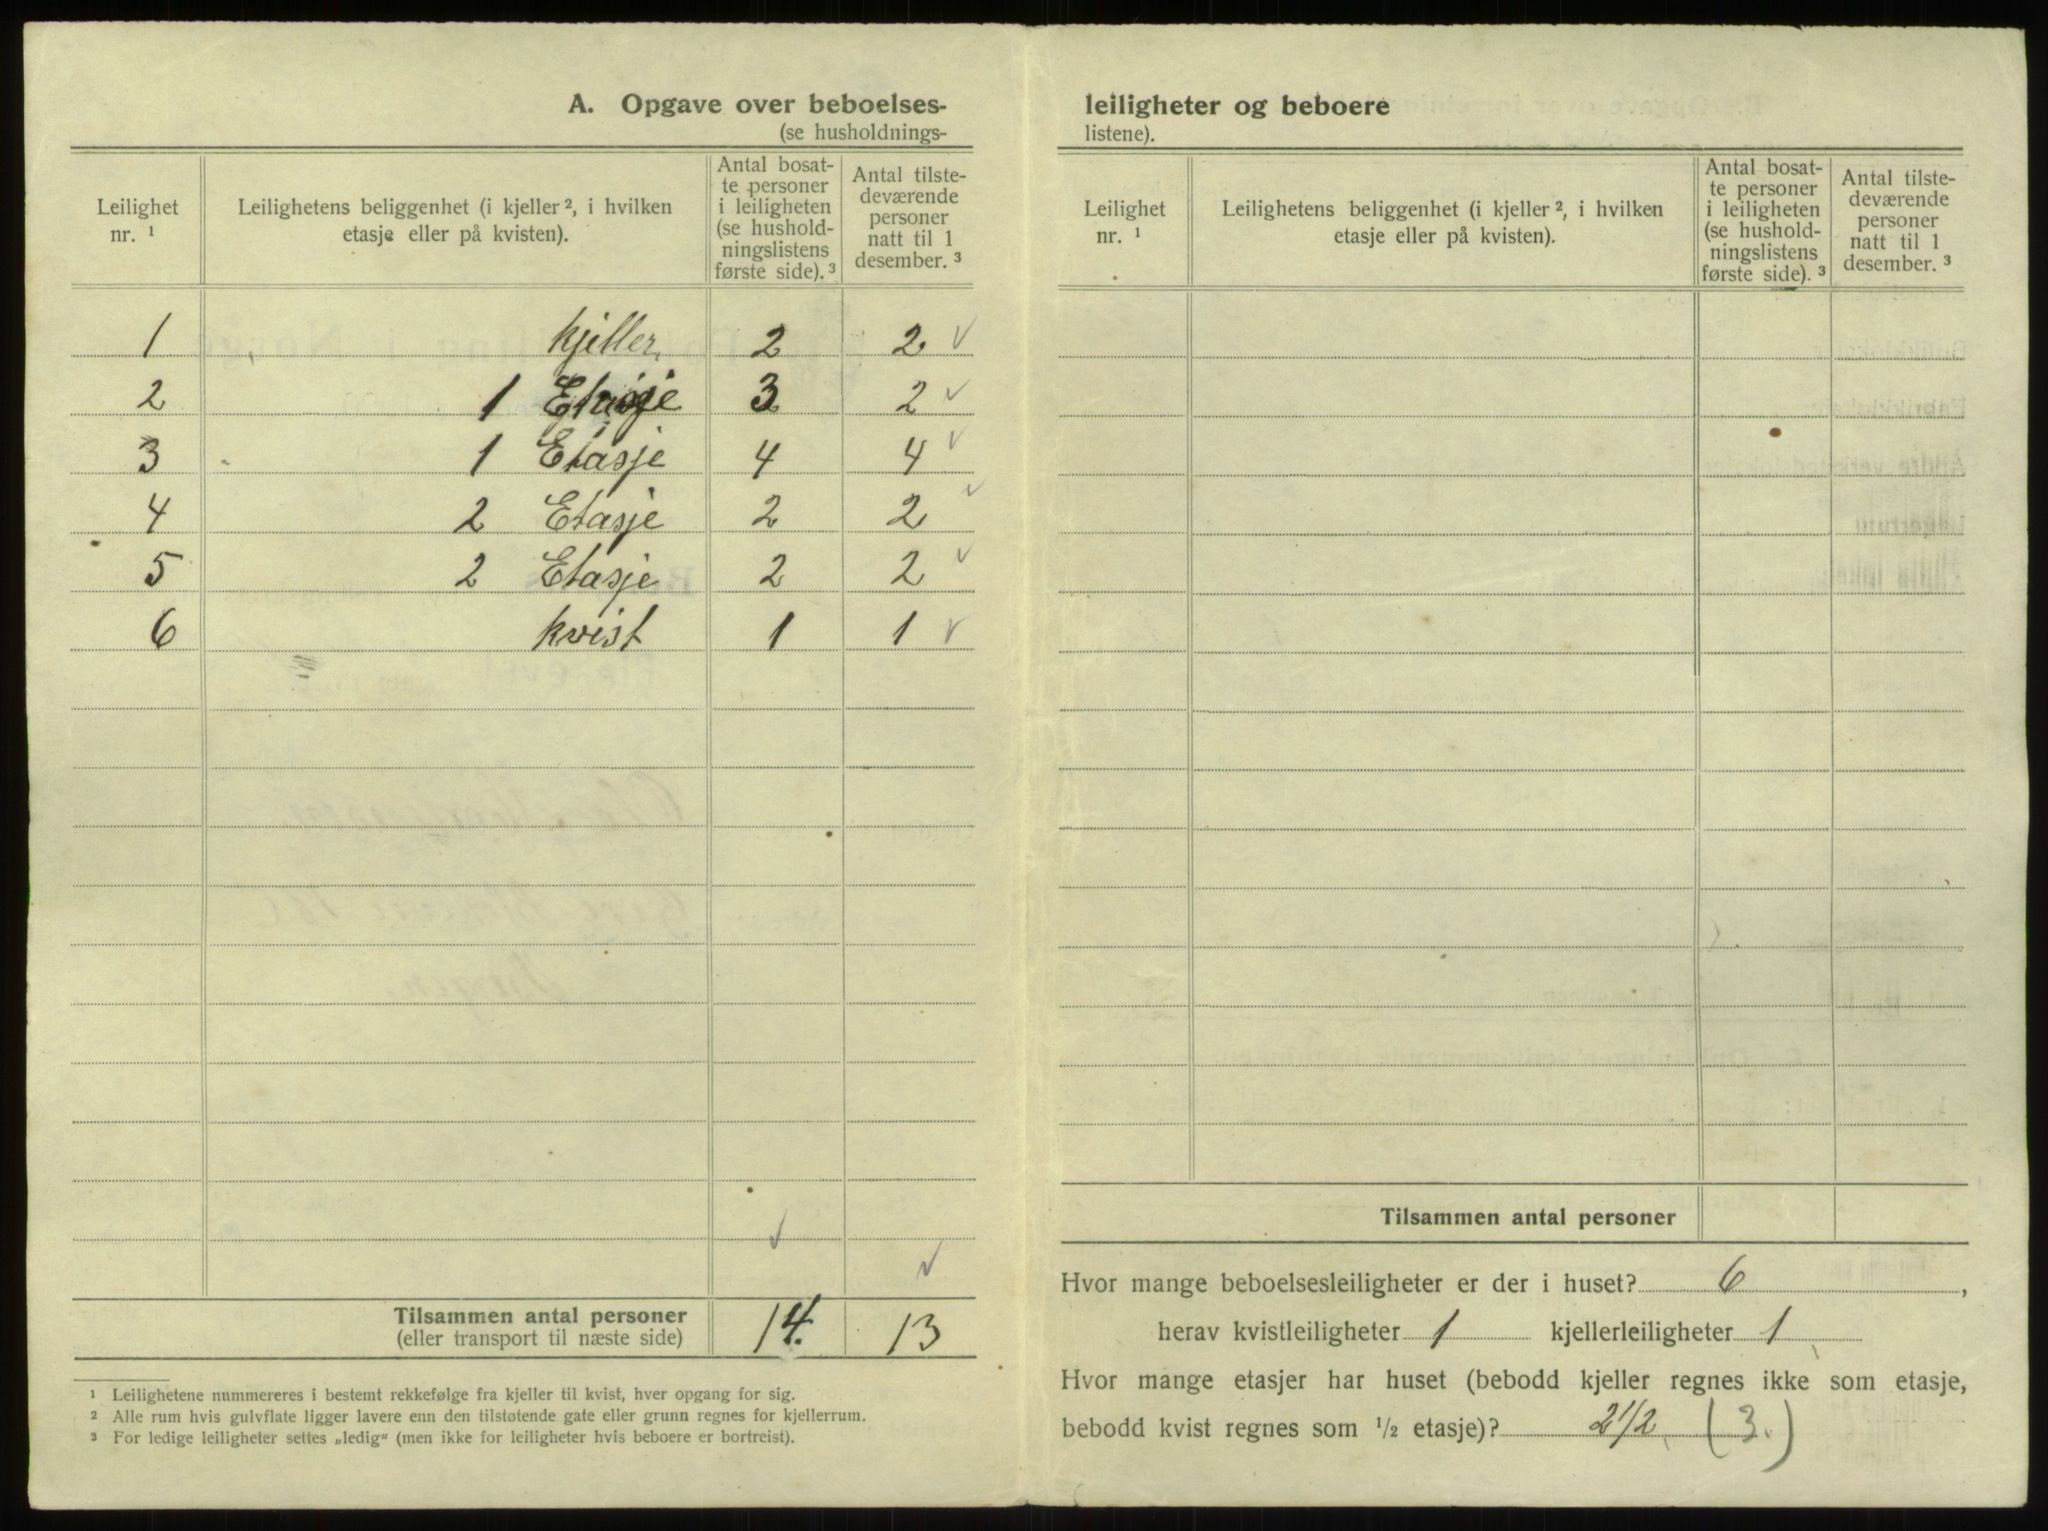 A. Opgave over beboelses-
(se husholdnings-
Leilighet nr. ¹
Leilighetens beliggenhet (i kjeller ², i hvilken etasje eller på kvisten).
Antal bosat-
te personer
i leiligheten
(se hushold-
ningslistens
første side). ³
Antal tilste-
deværende
personer
natt til 1
desember. ³
1 kjeller 2 2 ✓
2 1 Etasje 3 2 ✓
3 1 Etasje 4 4 ✓
4 2 Etasje 2 2 ✓
5 2 Etasje 2 2 ✓
6 kvist 1 1 ✓
✓
✓
Tilsammen antal personer 14. 13
(eller transport til næste side)
¹ Leilighetene nummereres i bestemt rekkefølge fra kjeller til kvist, hver opgang for sig.
² Alle rum hvis gulvflate ligger lavere enn den tilstøtende gate eller grunn regnes for kjellerrum.
³ For ledige leiligheter settes „ledig“ (men ikke for leiligheter hvis beboere er bortreist).
leiligheter og beboere
listene).
Leilighet nr. ¹
Leilighetens beliggenhet (i kjeller ², i hvilken etasje eller på kvisten).
Antal bosat-
te personer
i leiligheten
(se hushold-
ningslistens
første side). ³
Antal tilste-
deværende
personer
natt til 1
desember. ³
Tilsammen antal personer
Hvor mange beboelsesleiligheter er der i huset? 6,
herav kvistleiligheter 1 kjellerleiligheter 1
Hvor mange etasjer har huset (bebodd kjeller regnes ikke som etasje,
bebodd kvist regnes som ½ etasje)? 2 1/2. (3.)